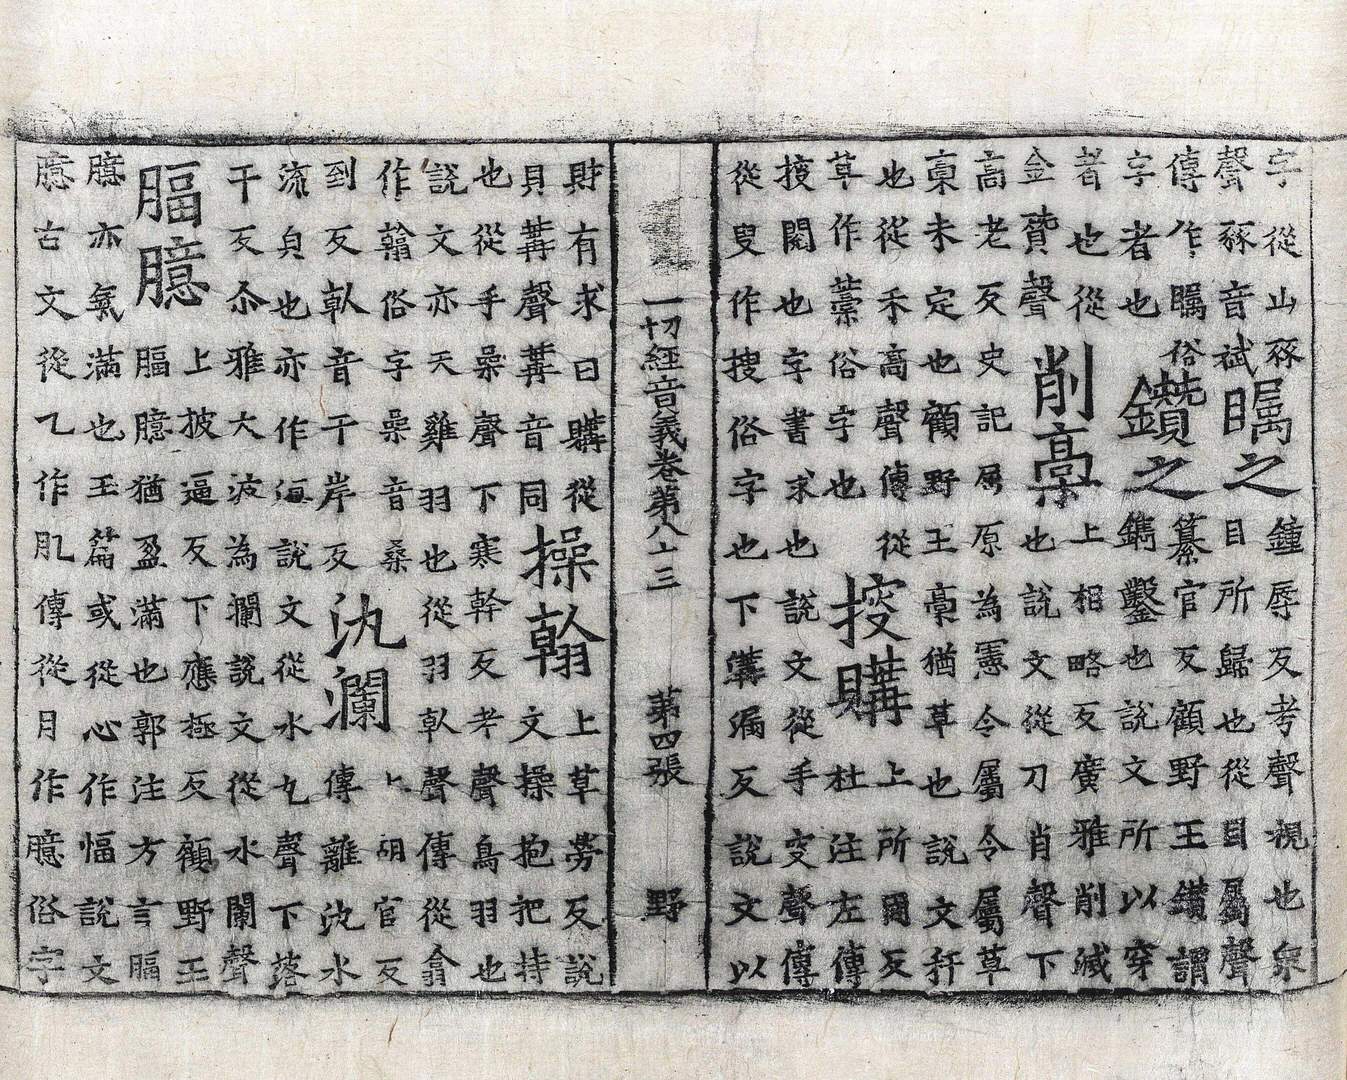 字從山豩矚之鐘辱反考聲視也衆
聲豩音斌目所歸也從目屬聲
傳作瞩俗鑽之纂官反顧野王鑚謂
字者也鐫鑿也說文所以穿
者也從削槀上相略反廣雅削減
金贊聲也說文從刀肖聲下
高老反史記屈原為憲令屬令屬草
槀未定也顧野王槀猶草也說文秆
也從禾高聲傳從挍購上所反
草作藁俗字也杜注左傳
挍閱也字書求也說文從手叜聲傳
從叟作搜俗字也下溝漏反說文以
一切經音義卷第八十三 第四張 野
財有求曰購從操翰上草勞反說
貝冓聲冓音同文操抱把持
也從手喿聲下寒幹反考聲鳥羽也
說文亦天雞羽也從羽倝聲傳從翕
作俗字喿音桑汍瀾上胡官反
到反倝音干岸反傳離汍水
流皃也亦作洹說文從水丸聲下落
干反尒雅大波為瀾說文從水闌聲
腷臆上披逼反下應極反顧野王
腷臆猶盈滿也郭注方言腷
臆亦氣滿也玉篇或從心作愊說文
臆古文從乙作肊傳從月作臆俗字